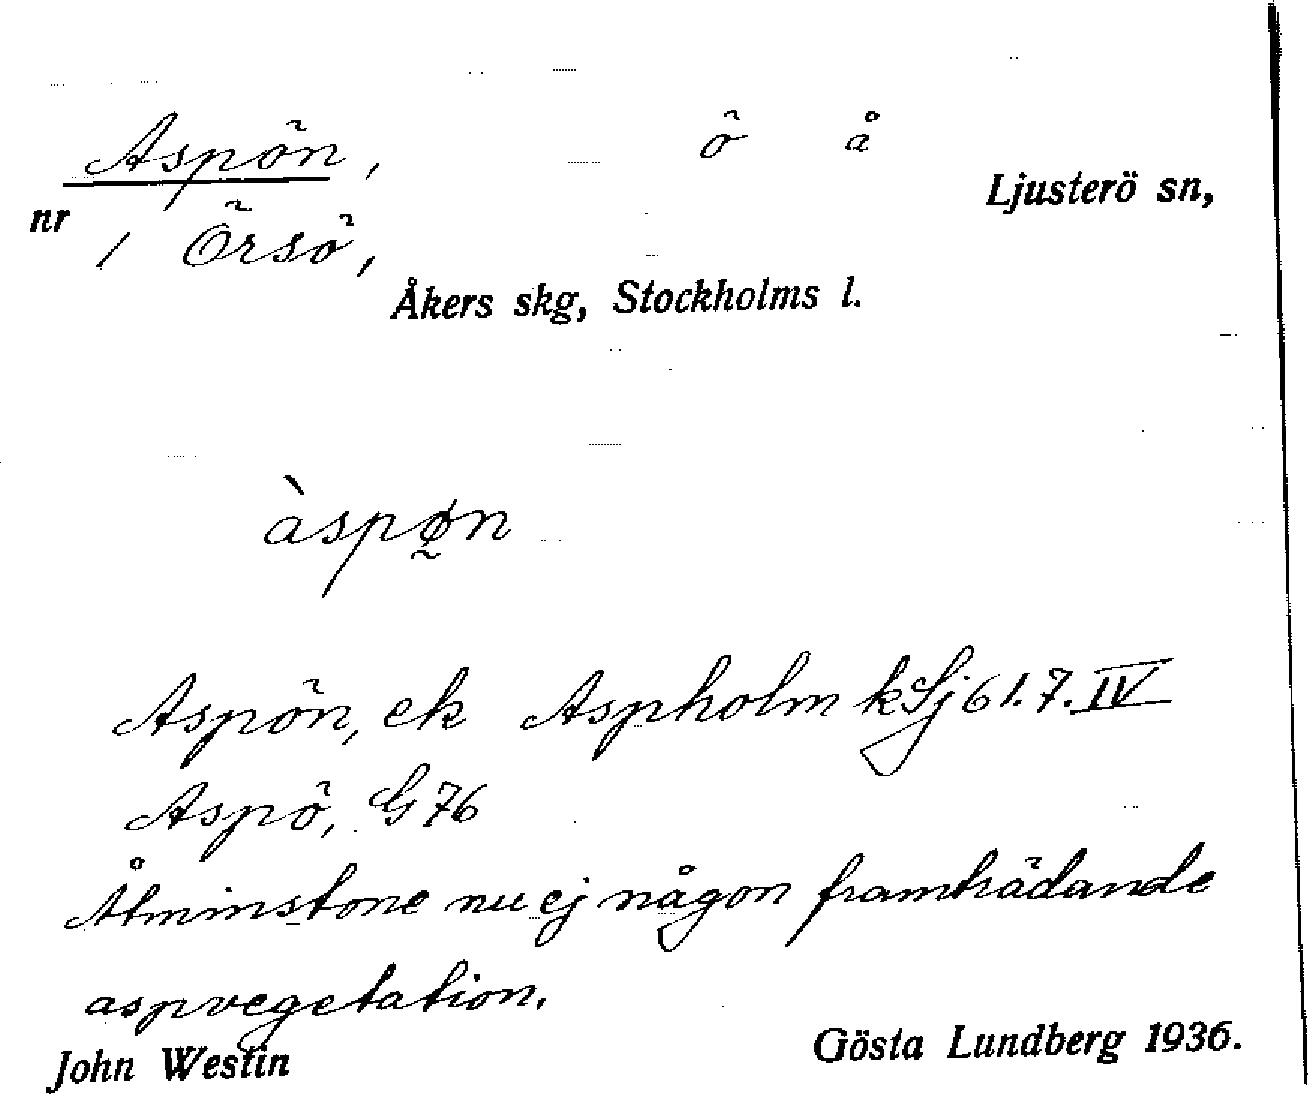 Aspön, ö å
Ljusterö sn,
nr 1 Örsö,
Åkers skg, Stockholms l.
àspøn
Aspön, ek Aspholm kSj61.7.IV
Aspö, G76
Åtminstone nu ej någon framträdande
aspvegetation.
John Westin Gösta Lundberg 1936.